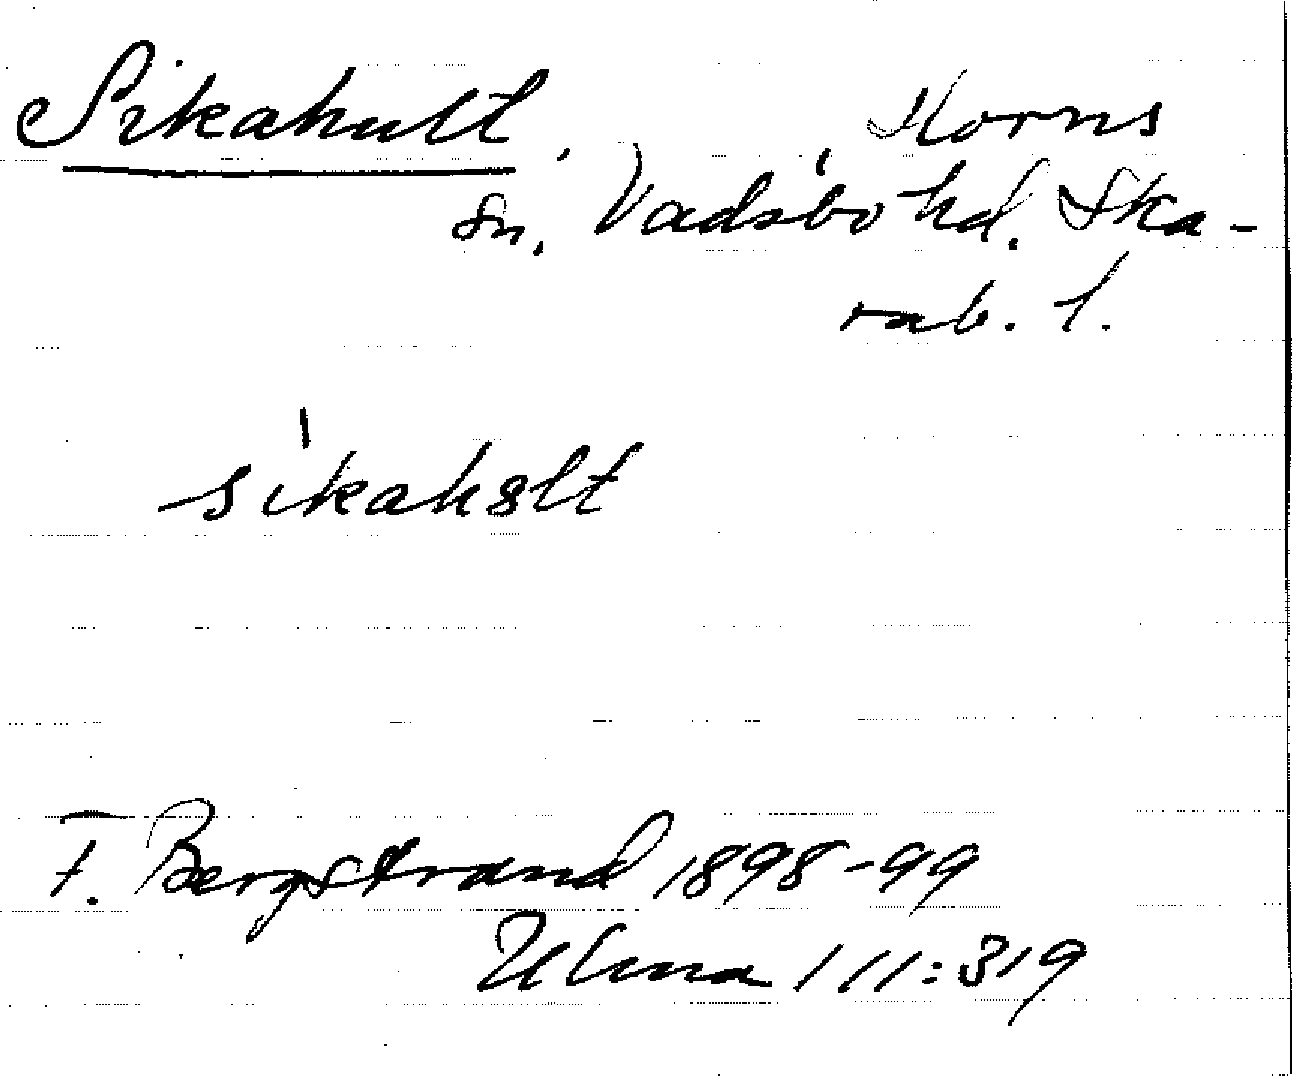 Sikahult, Horns
sn, Vadsbo hd. Ska-
rab. l.
sikahslt
F. Bergstrand 1898-99
Ulma 111:319